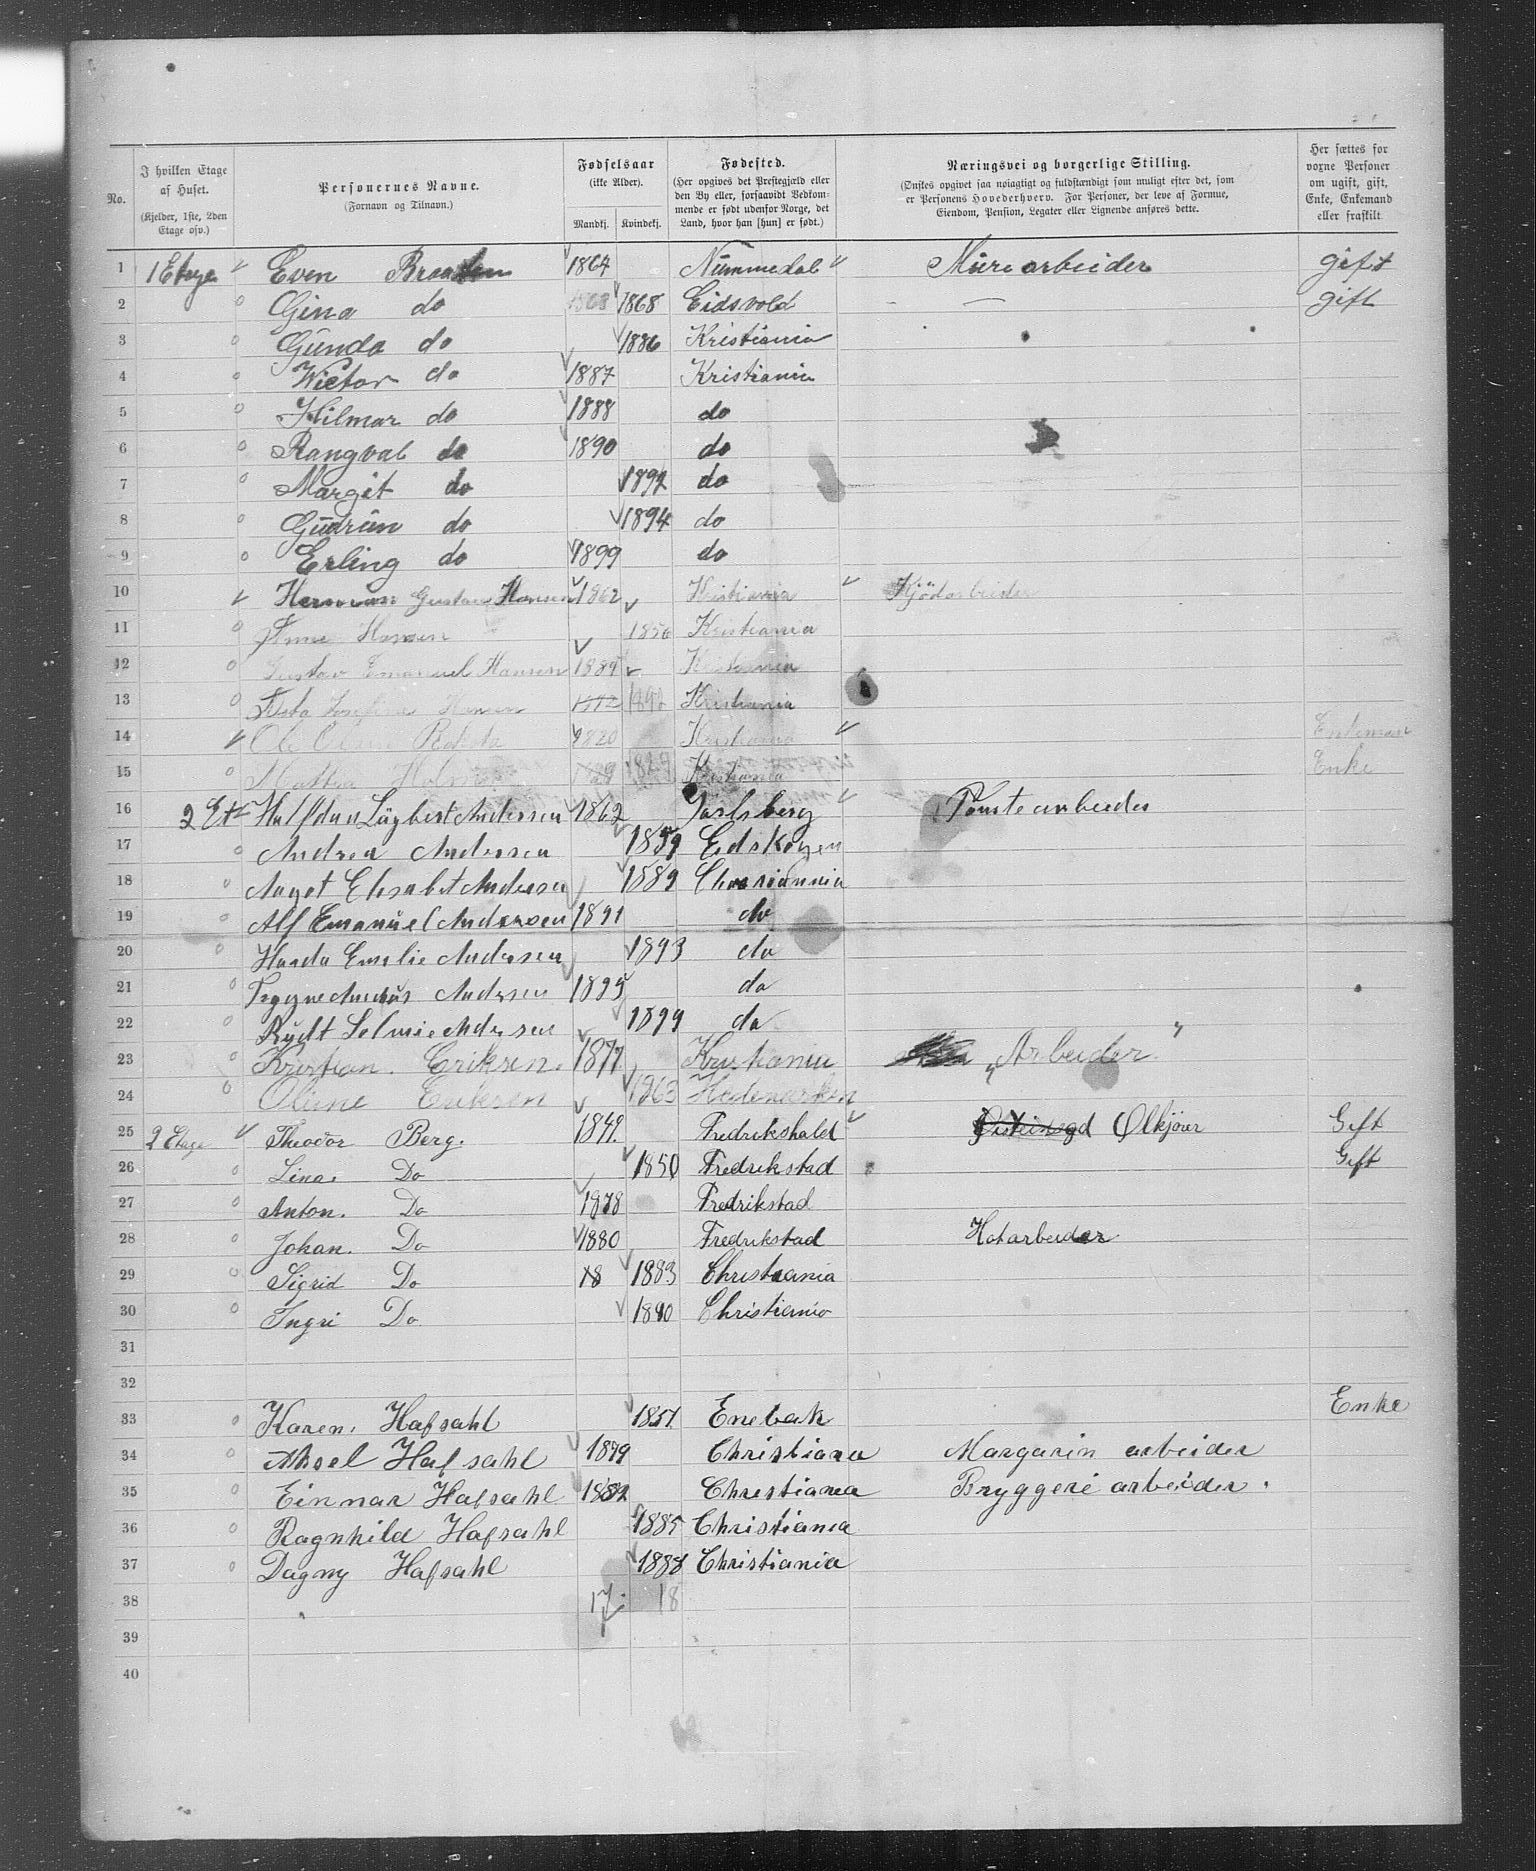 No.
I hvilken Etage af Huset. (Kjelder, 1ste, 2den Etage osv.)
Personernes Navne. (Fornavn og Tilnavn.)
Fødselsaar (ikke Alder). Mandkj. Kvindekj.
Fødested. (Her opgives det Prestegjæld eller den By eller, forsaavidt Vedkommende er født udenfor Norge, det Land, hvor han [hun] er født.)
Næringsvei og borgerlige Stilling. (Ønskes opgivet saa nøiagtigt og fuldstændigt som muligt efter det, som er Personens Hovederhverv. For Personer, der leve af Formue, Eiendom, Pension, Legater eller Lignende anføres dette.)
Her sættes for voxne Personer om ugift, gift, Enke, Enkemand eller fraskilt
1 1 Etage Even Braaten 1864 Nummedal Mure arbeider gift
2 Gina do 1868 1868 Eidsvold — gift
3 Gunda do 1886 Kristiania
4 Wictor do 1887 Kristiania
5 Hilmar do 1888 do
6 Rangval do 1890 do
7 Margit do 1892 do
8 Gudrun do 1894 do
9 Erling do 1899 do
10 Herman Gustav Hansen 1862 Kristiania Kjödarbeider
11 Anna Hansen 1856 Kristiania
12 Gustav Emanuel Hansen 1889 Kristiania
13 Josefine Hansen 1892 Kristiania
14 Ole Olsen 1820 Kristiania Enkeman
15 Mathea Holm 1829 Kristiania Enke
16 2 Et Halfdan Andersen 1862 Jarlsberg Tomtearbeider
17 Andrea Andersen 1859 Eidskogen
18 Aagot Elisabet Andersen 1889 Christiannia
19 Alf Emanuel Andersen 1891 do
20 Emelie Andersen 1893 do
21 Andersen 1895 do
22 Andersen 1899 do
23 Kristian. Eriksen. 1877 Kristiania "Arbeider"
24 Oline Eriksen 1863 Hedemarken
25 2 Etage Theodor Berg. 1849. Fredrikshald Ølkjører Gift
26 Lina. Do 1850 Fredrikstad Gift
27 Anton. Do 1878 Fredrikstad
28 Johan. Do 1880 Fredrikstad Hatarbeider
29 Sigrid Do 18 1883 Christiania
30 Ingri Do. 1890 Christiania
31
32
33 Karen. Hafsahl 1851. Enebak Enke
34 Aksel Hafsahl 1879 Christiana Margarin arbeider
35 Einnar Hafsahl 1882 Christiania Bryggeri arbeider.
36 Ragnhild Hafsahl 1885 Christiania
37 Dagny Hafsahl 1888 Christiania
38 17. 18
39
40